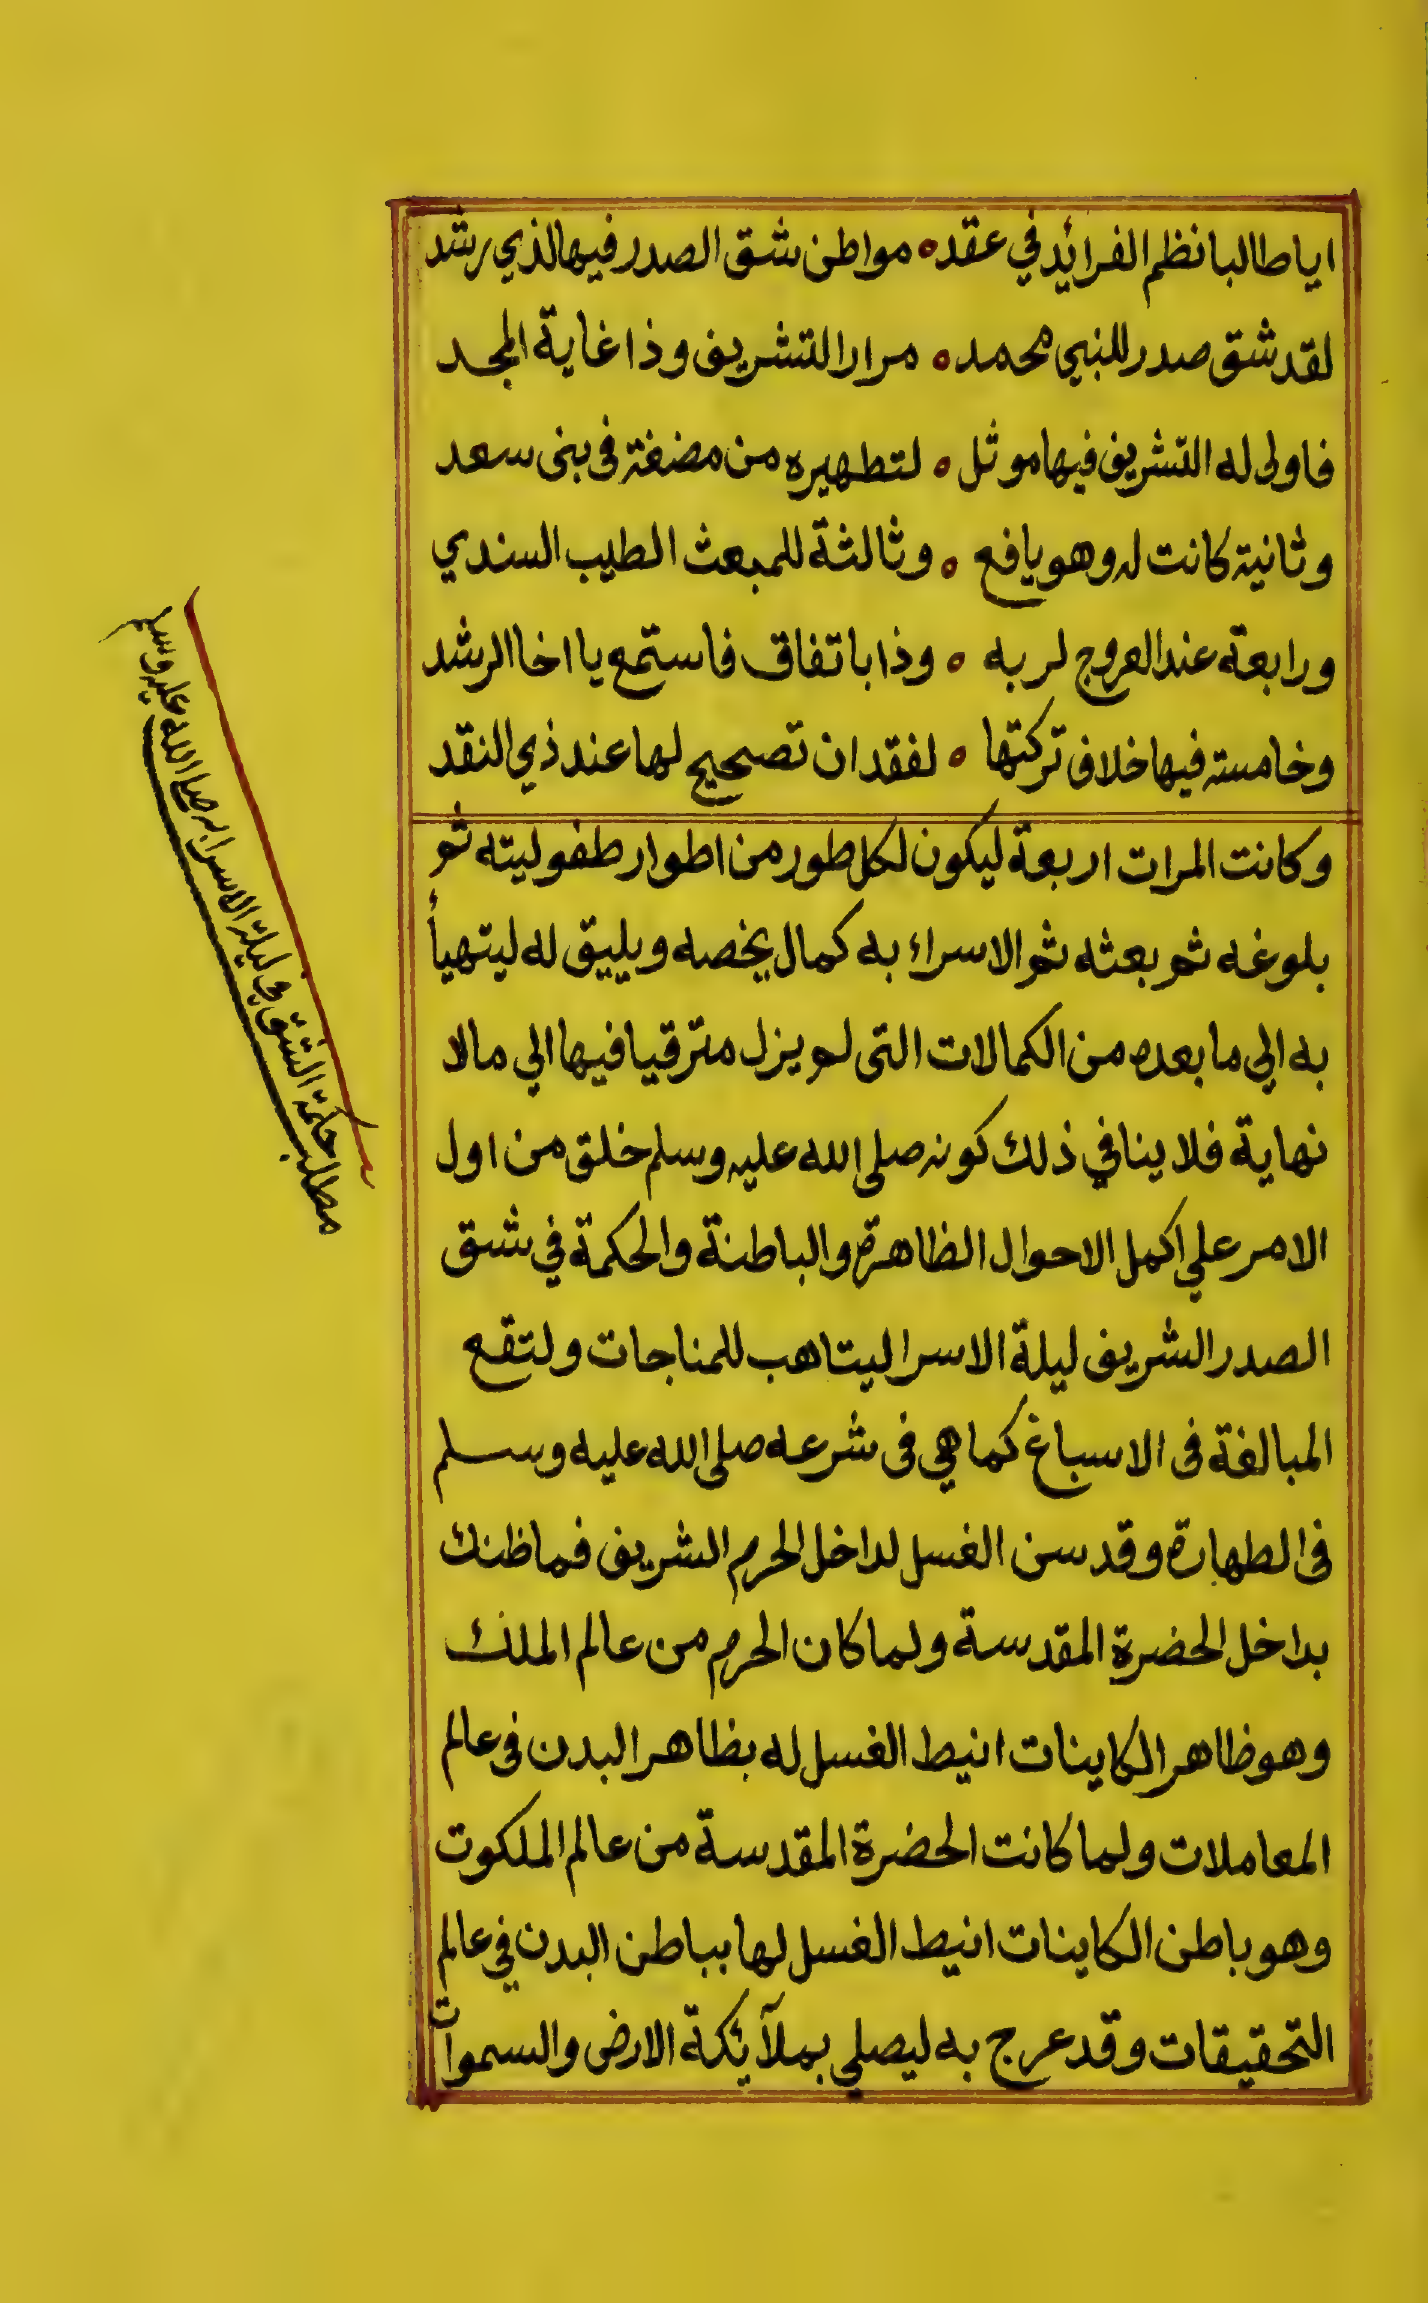 اياطالبا نظم الفرائد في عقد ه مواطن شق الصدر فيها لذي رشد
لقد شق صدر للنبي محمد ه مرارا لتشريف وذا غاية المجد
فاولى له التشريف فيها موثل ه لتطهيره من مضغة في بنى سعد
وثانية كانت له وهو يافع ه وثالثة للمبعث الطيب السندي
ورابعة عند العروج لربه ه وذا باتفاق فاستمع يا اخا الرشد
وخامسة فيها خلاف تركتها ه لفقدان تصحيح لها عند ذي النقد
وكانت المرات اربعة ليكون لكل طور من اطوار طفوليته ثم
بلوغه ثم بعثه ثم الاسراء به كمال يخصه ويليق له ليتهيأ
به الي ما بعده من الكمالات التى لم يزل مترقيا فيها الي مالا
نهاية فلا ينافي ذلك كونه صلى الله عليه وسلم خلق من اول
الامر علي اكمل الاحوال الظاهرة والباطنة والحكمة في شق
الصدر الشريف ليلة الاسرا ليتاهب للمناجات ولتقع
المبالغة فى الاسباغ كما هي فى شرعه صلى الله عليه وسلم
فى الطهارة وقد سن الغسل لداخل الحرم الشريف فما ظنك
بداخل الحضرة المقدسة ولما كان الحرم من عالم الملك
وهو ظاهر الكاينات انيط الغسل له بظاهر البدن فى عالم
المعاملات ولما كانت الحضرة المقدسة من عالم الملكوت
وهو باطن الكاينات انيط الغسل لها بباطن البدن في عالم
التحقيقات وقد عرج به ليصلي بملآئكة الارض والسموات
مطلب حكمة الشق في ليلة الاسرا به صلى الله عليه وسلم